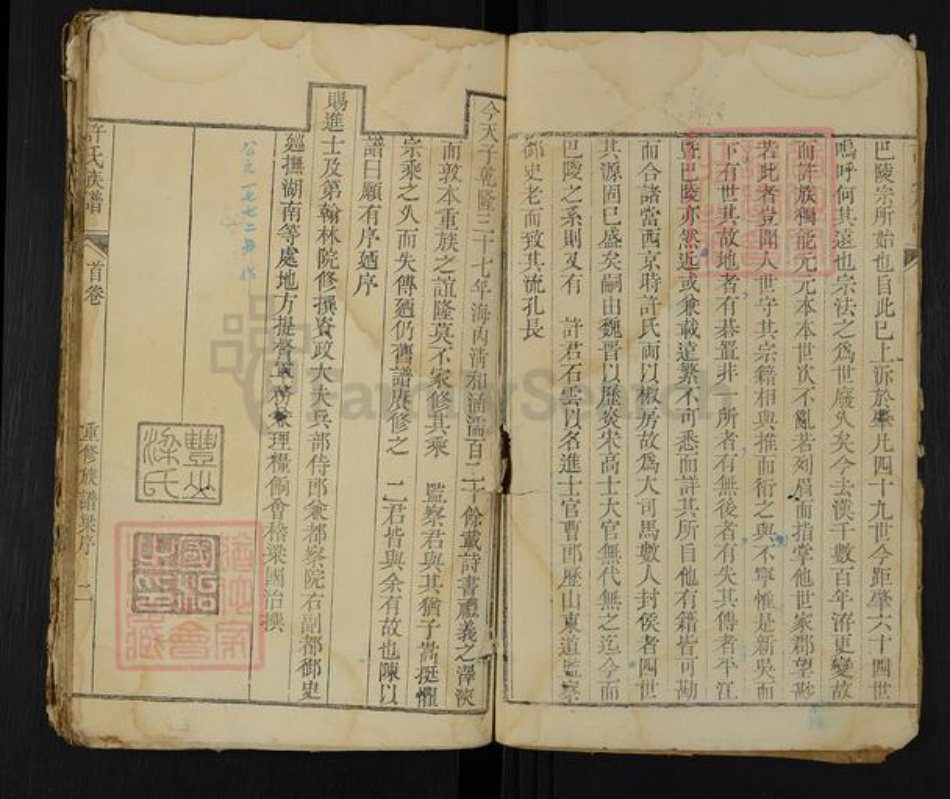 巴陵宗所始也自此已上泝於肇凡四十九世今距肇六十四世
嗚呼何其遠也宗法之為世廢久矣今去漢千數百年洊更變故
而許族獨能元元本本世次不亂若列眉而指掌他世家郡望尠
若此者豈聞人世守其宗籍相與推而衍之與不寧惟是新吳而
下有世其故地者有碁置非一所者有無後者有失其傳者平江
暨巴陵亦然近或兼載遠繁不可悉而詳其所自他有籍皆可勘
而合諸當西京時許氏兩以椒房故為大司馬數人封侯者四世
其源固已盛矣嗣由魏晋以歷炎宋高士大官無代無之迄今而
巴陵之系則又有 許君石雲以名進士官曹郎歷山東道監察
御史老而致其流孔長
今天子乾隆三十七年海內清和涵濡百二十餘載詩書禮義之澤浹
而敦本重族之誼隆莫不家修其乘 監察君與其猶子嵩挺懼
宗乘之久而失傳廼仍舊譜賡修之 二君皆與余有故也陳以
譜曰願有序廼序
賜進士及第翰林院修撰資政大夫兵部侍郎兼都察院右副都御史
廵撫湖南等處地方提督軍務兼理糧餉會稽梁國治撰
公元一七七二年
豐山
梁氏
國治
之印
許氏族譜
首卷
重修族譜梁序
二
FamilySearch